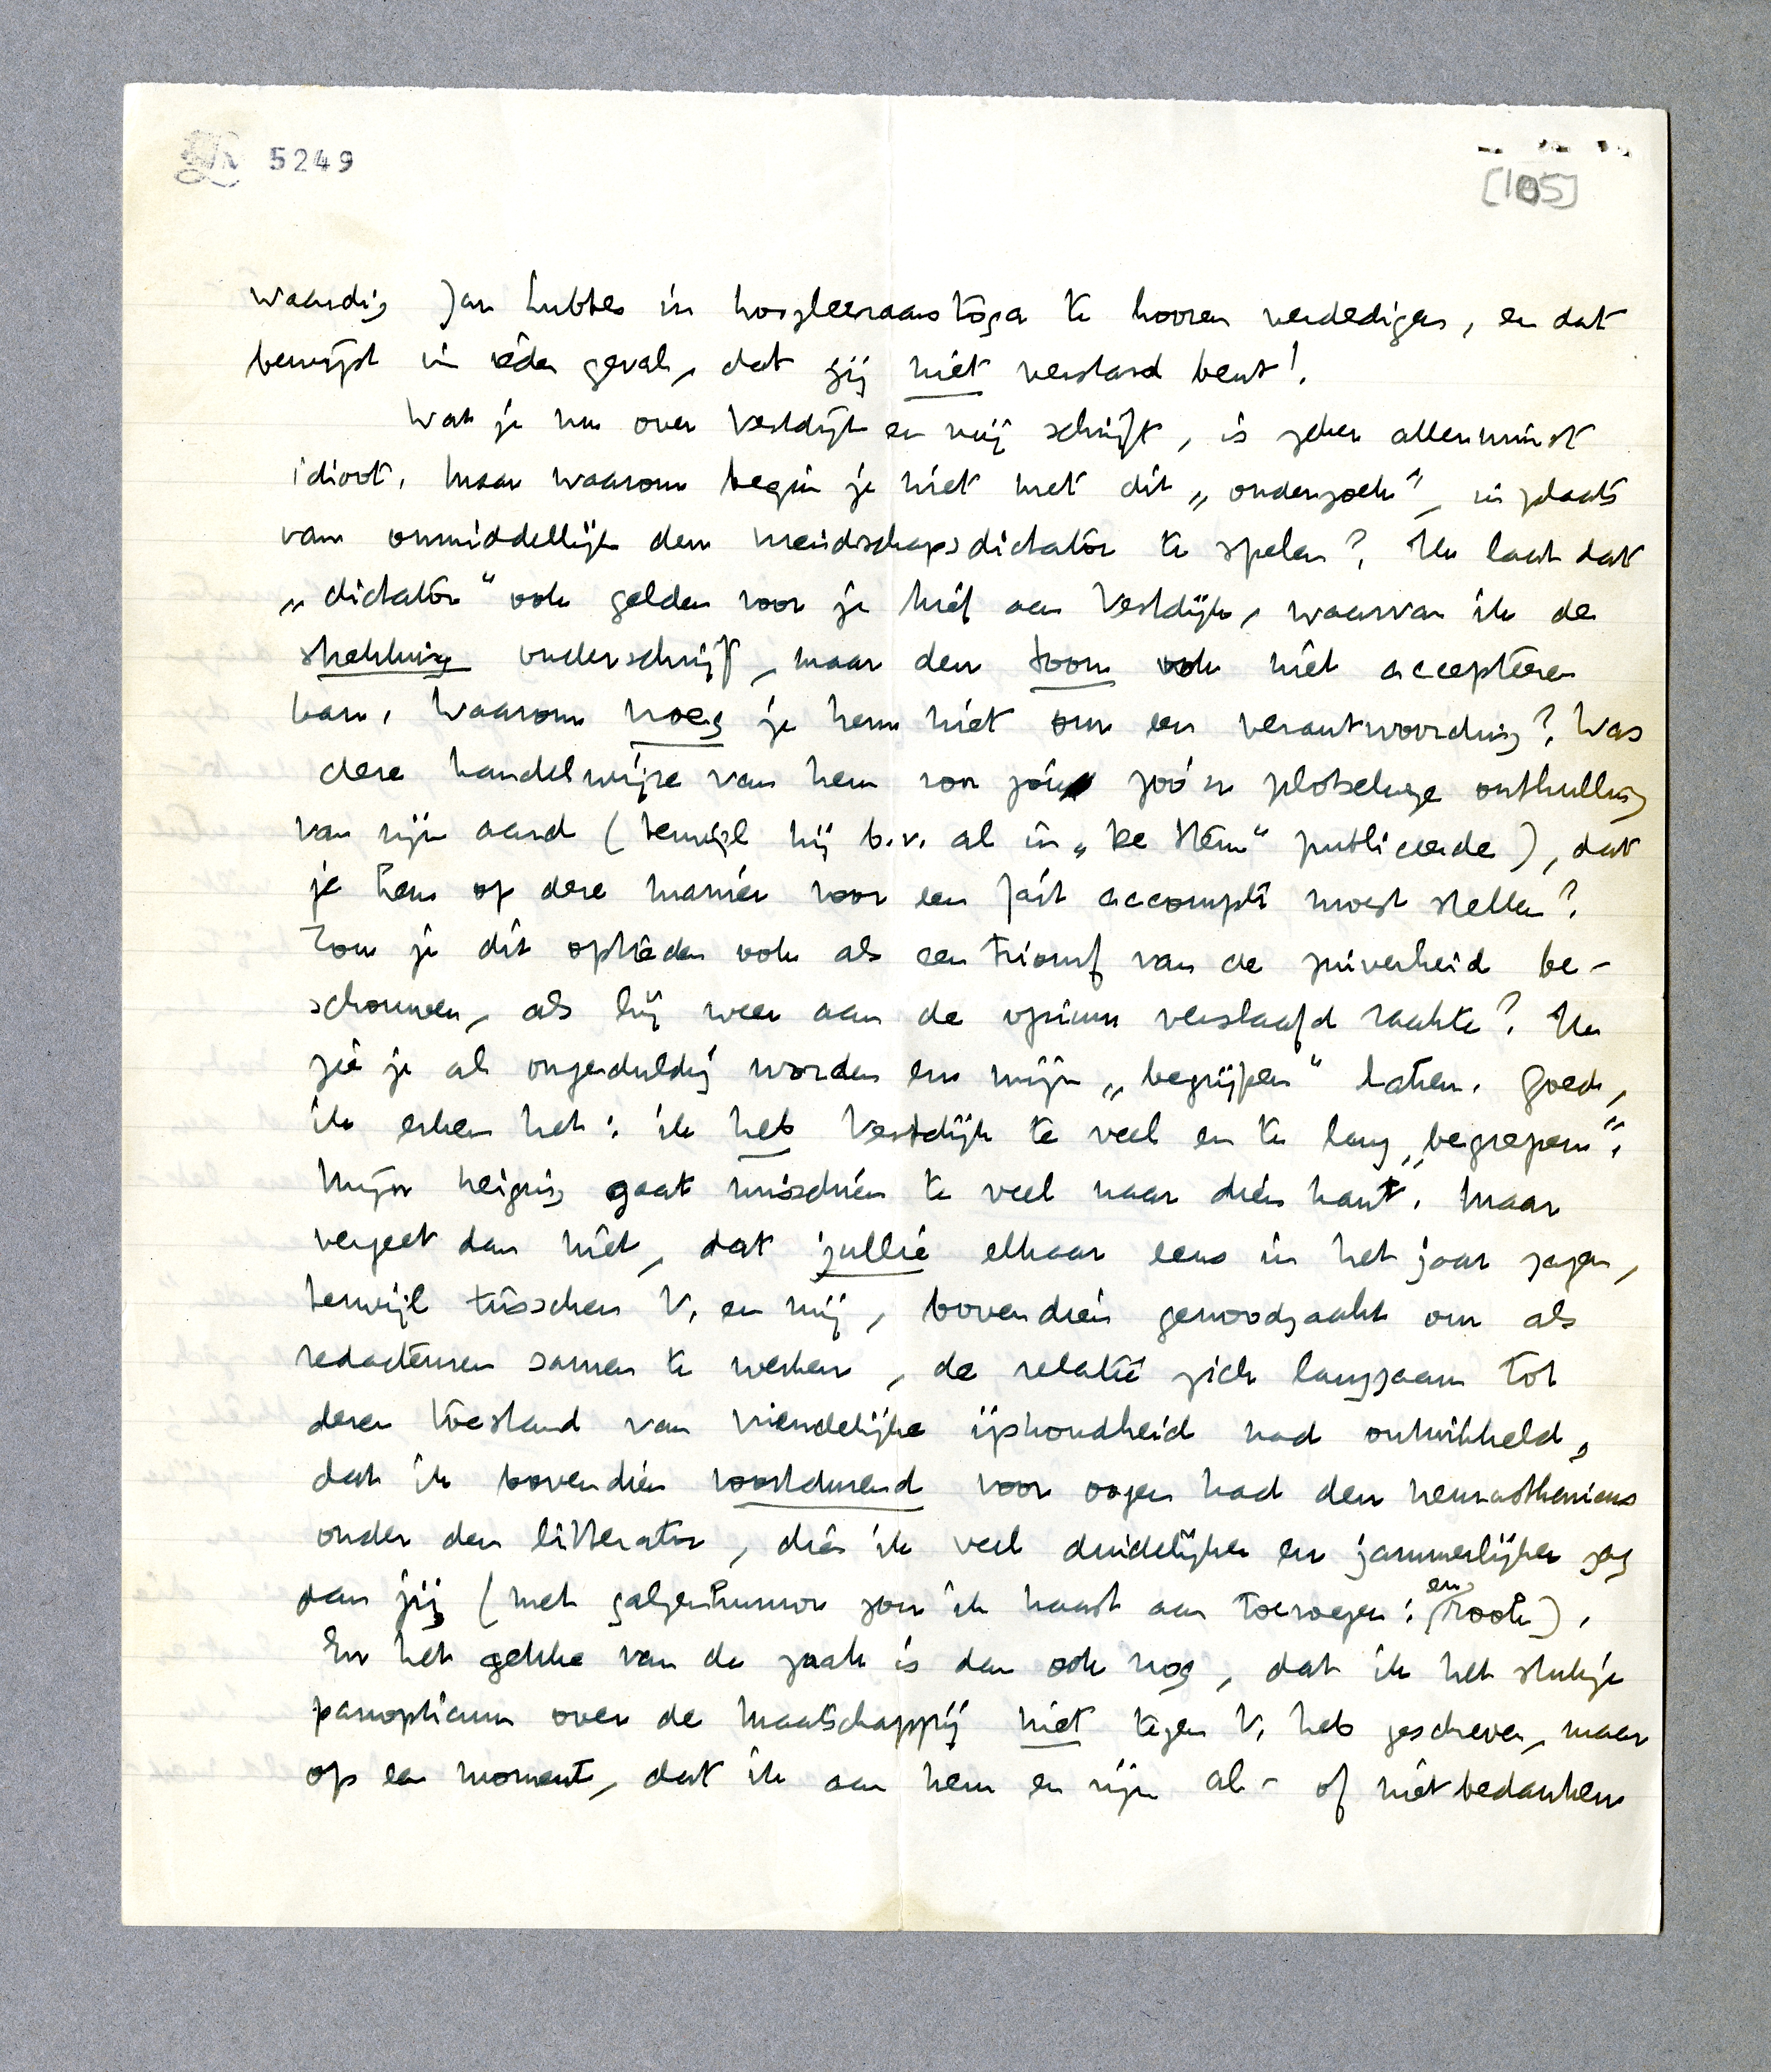 5249
[105]
waardig Jan Lubbes in hoogleeraarstoga te hooren verdedigen, en dat
bewijst in ieder geval, dat jij niet verstard bent!
Wat je nu over Vestdijk en mij schrijft, is zeker allerminst
idioot. Maar waarom begin je niet met dit „onderzoek”, in plaats
van onmiddellijk den vriendschapsdictator te spelen? Nu laat dat
„dictator” ook gelden voor je brief aan Vestdijk, waarvan ik de
strekking onderschrijf, maar den toon ook niet accepteren
kan. Waarom vroeg je hem niet om een verantwoording? Was
deze handelwijze van hem voor jou zoo'n plotselinge onthulling
van zijn aard (terwijl hij b.v. al in „De Stem” publiceerde), dat
je hem op deze manier voor een fait accompli moest stellen?
Zou je dit optreden ook als een triomf van de zuiverheid be-
schouwen, als hij weer aan de opium verslaafd raakte? Nu
zie je al ongeduldig worden en mijn „begrijpen” haten. Goed,
ik erken het: ik heb Vestdijk te veel en te lang „begrepen”.
Mijn neiging gaat misschien te veel naar dien kant. Maar
vergeet dan niet, dat jullie elkaar eens in het jaar zagen,
terwijl tusschen V. en mij, bovendien genoodzaakt om als
redacteuren samen te werken, de relatie zich langzaam tot
dezen toestand van vriendelijke ijskoudheid had ontwikkeld,
dat ik bovendien voortdurend voor oogen had den neurasthenicus
onder den litterator, dien ik veel duidelijker en jammerlijker zag
dan jij (met galgenhumor zou ik haast aan toevoegen: en rook).
En het gekke van de zaak is dan ook nog, dat ik het stukje
panopticum over de Maatschappij niet tegen V. heb geschreven, maar
op een moment, dat ik aan hem en zijn al- of niet bedanken